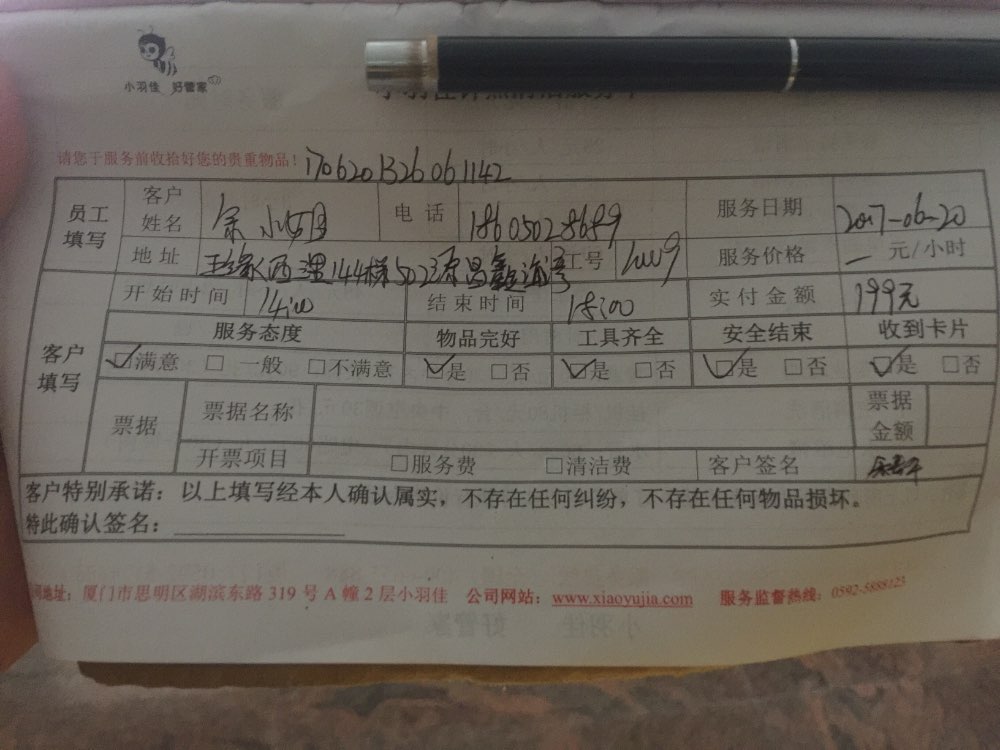 小羽佳 好管家
请您于服务前收拾好您的贵重物品! 1706201326061142
员工填写 客户姓名 余小姐 电话 18605028689 服务日期 2017-06-20
地址 西里144梯502 源昌鑫海湾 工号 服务价格 一 元/小时
客户填写 开始时间 14:00 结束时间 18:00 实付金额 199元
服务态度 物品完好 工具齐全 安全结束 收到卡片
☑满意 □一般 □不满意 ☑是 □否 ☑是 □否 ☑是 □否 ☑是 □否
票据 票据名称 票据金额
开票项目 □服务费 □清洁费 客户签名
客户特别承诺：以上填写经本人确认属实，不存在任何纠纷，不存在任何物品损坏。
特此确认签名：
司地址：厦门市思明区湖滨东路 319 号 A 幢 2 层小羽佳 公司网站：www.xiaoyujia.com 服务监督热线：0592-5888123